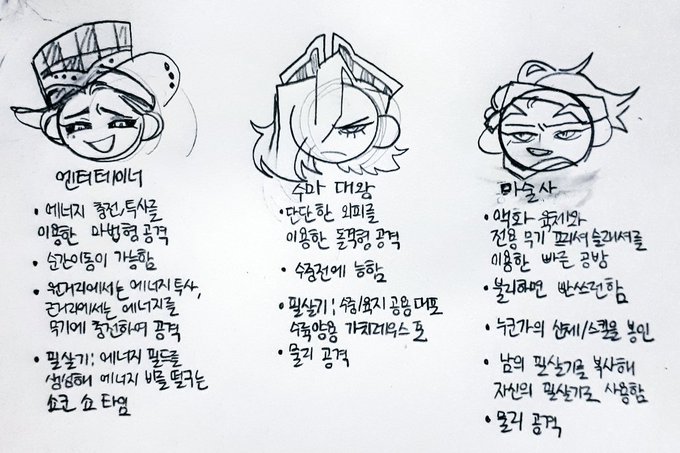 엔터테이너
• 에너지 충전, 투사를
이용한 마법형 공격
• 순간이동이 가능함
• 원거리에서는 에너지 투사,
근거리에서는 에너지를
무기에 충전하여 공격
• 필살기; 에너지 필드를
생성해 에너지 비를 떨구는
쇼코 쇼 타임
수마 대왕
• 단단한 외피를
이용한 돌격형 공격
• 수중전에 능함
• 필살기; 수중/육지 공용 대포
수륙양용 가치레우스 포
• 물리 공격
마술사
• 액화 육체와
전용 무기 프리셔 슬래셔를
이용한 빠른 공방
• 불리하면 빤쓰런함
• 누군가의 신체/스킬을 봉인
• 남의 필살기를 복사해
자신의 필살기로 사용함
• 물리 공격